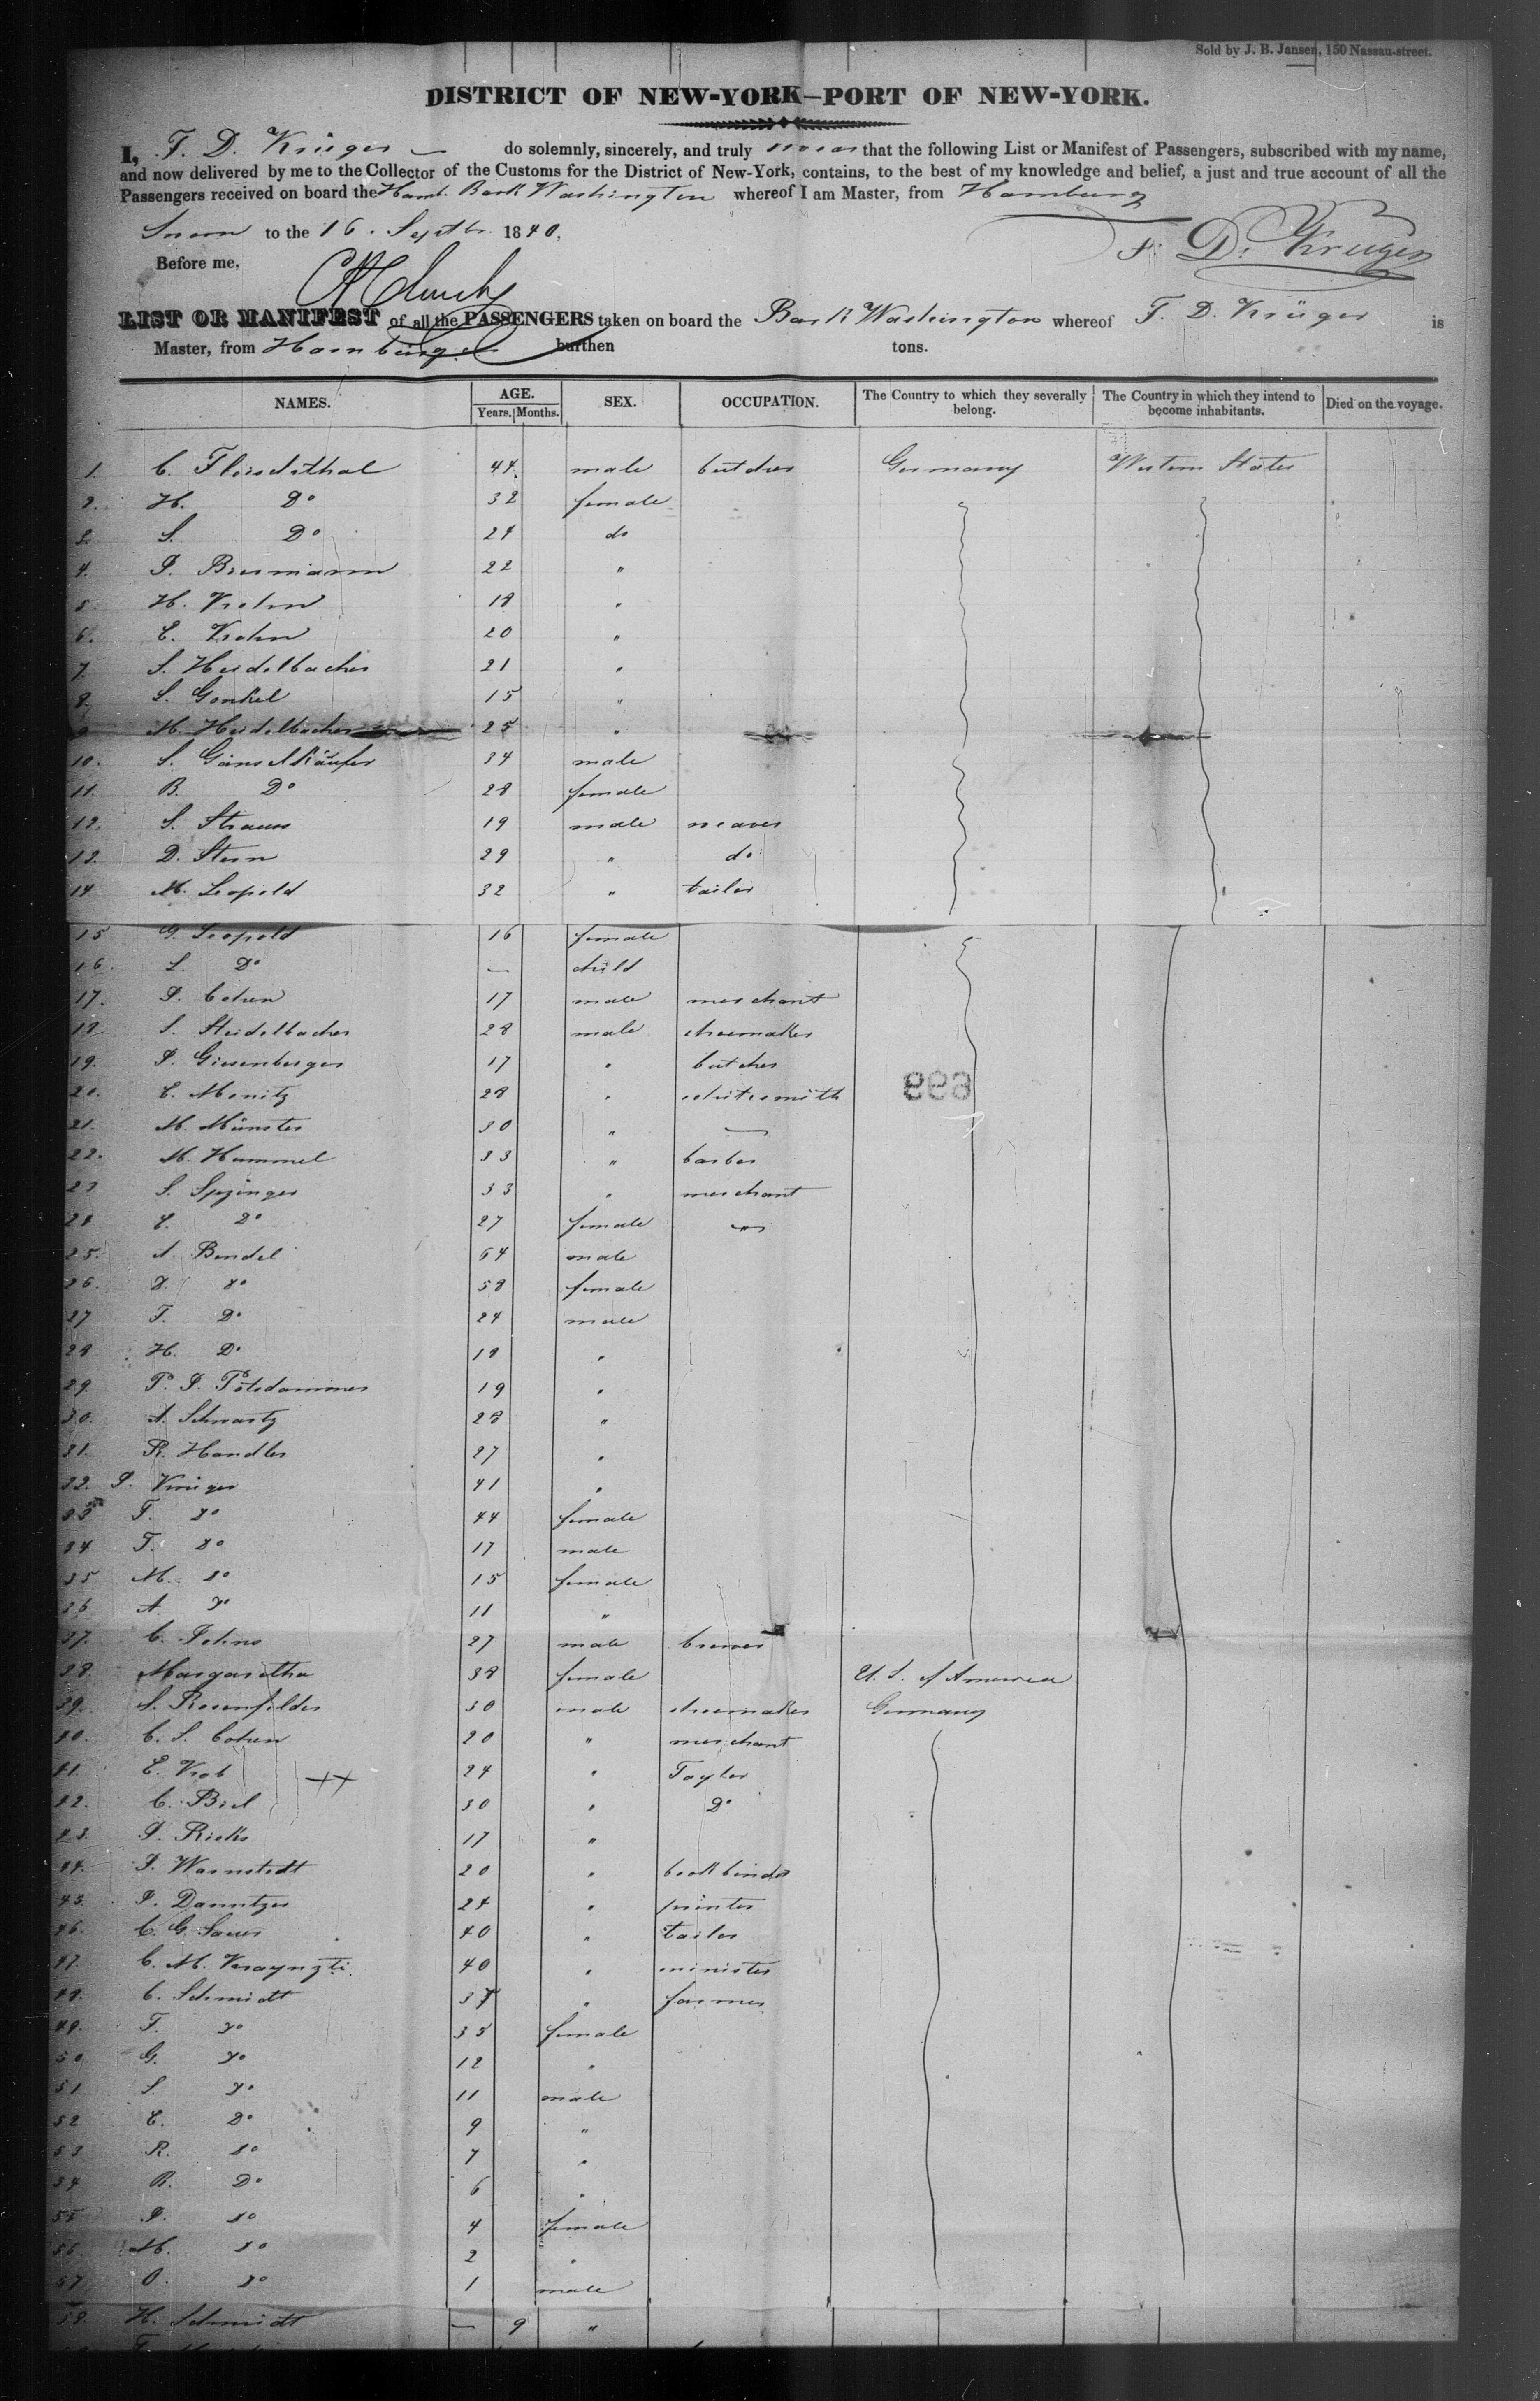 Sold by J. B. Jansen, 150 Nassau-street.
DISTRICT OF NEW-YORK—PORT OF NEW-YORK.
I, F. D. Krüger do solemnly, sincerely, and truly swear that the following List or Manifest of Passengers, subscribed with my name,
and now delivered by me to the Collector of the Customs for the District of New-York, contains, to the best of my knowledge and belief, a just and true account of all the
Passengers received on board the Hamb. Bark Washington whereof I am Master, from Hamburg
Sworn to the 16. Septbr. 1840.
F. D. Krüger
Before me,
LIST OR MANIFEST of all the PASSENGERS taken on board the Bark Washington whereof F. D. Krüger is
Master, from Hamburg burthen tons.
NAMES. AGE. Years. Months. SEX. OCCUPATION. The Country to which they severally belong. The Country in which they intend to become inhabitants. Died on the voyage.
1. C. 44. male butcher Germany Western States
2. H. Do 32 female
3. S. Do 24 do
4. I. 22 "
5. H. Krohn 18 "
6. E. Krohn 20 "
7. S. Heidelbacher 21 "
8. S. Gonkel 15 "
9 M. Heidelbacher 25 "
10. S. 34 male
11. B. Do 28 female
12. S. Strauss 19 male weaver
13. D. Stern 29 " do
14 M. Leopold 32 " tailor
15 G. Leopold 16 female
16. L. Do — child
17. I. Cohen 17 male merchant
18 S. Heidelbacher 28 male shoemaker
19. I. Giesenberger 17 " butcher
20. E. Monitz 28 " whitesmith
21. M. Münster 30 " —
22. M. Hummel 33 " barber
23 S. 33 " merchant
24 E. Do 27 female "
25. A. Bendel 64 male
26. D. Do 58 female
27 F. Do 24 male
28 H. Do 18 "
29. P. I. Potsdammer 19 "
30. A. Schwartz 28 "
31. R. Handler 27 "
32. I. Krüger 41 "
33 F. Do 44 female
34 F. Do 17 male
35 M. Do 15 female
36 A. Do 11 "
37. C. Johns 27 male brewer
38. Margaretha 38 female U. S. of America
39. S. Rosenfelder 30 male shoemaker Germany
40. C. S. Cohen 20 " merchant
41. E. Krob 24 " Taylor
42. C. Biel 30 " Do
43. I. Ricks 17 "
44. I. Warnstedt 20 " bookbinder
45. I. Dannitzer 24 " printer
46. C. G. Sauer 40 " tailor
47. C. M. 40 " minister
48. C. Schmidt 37 " farmer
49. F. Do 35 female
50 G. Do 12 "
51 S. Do 11 male
52 E. Do 9 "
53 R. Do 7 "
54 B. Do 6 "
55 I. Do 4 female
56 M. Do 2 "
57 O. Do 1 male
58. H. Schmidt — 9 "